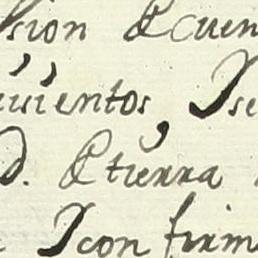 sion & cuen
isientos, Ise
d. & tierra
Icon firm